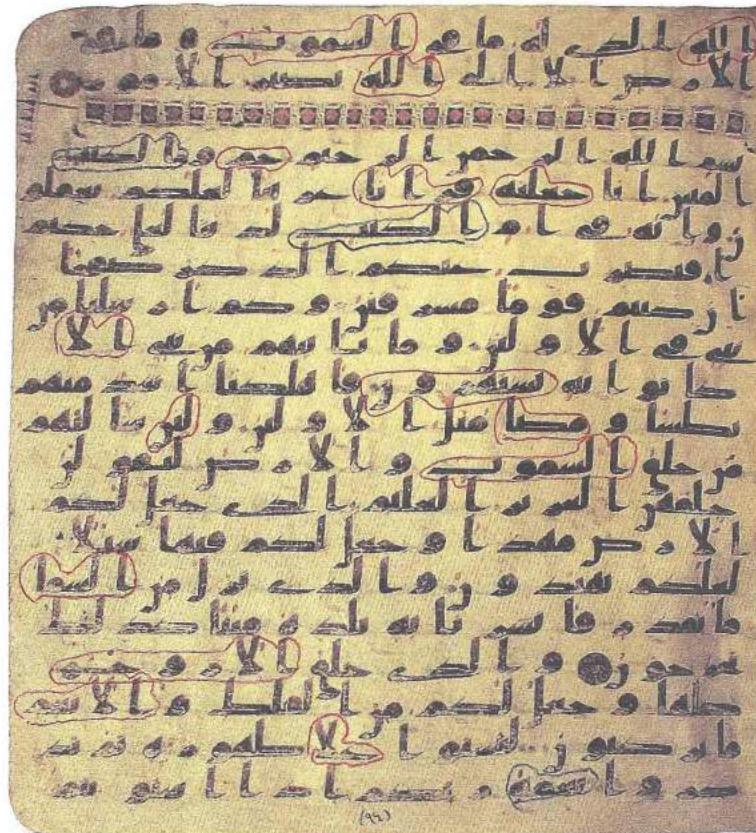 الله الذي له ما في السموت وما في
الارض الا الى الله تصير الامور
بسم الله الرحمن الرحيم حم والكتب
المبين انا جعلنه قرانا عربيا لعلكم تعقلو
ن وانه في ام الكتب لدينا لعلي حكيم
افنضرب عنكم الذكر صفحا
ان كنتم قوما مسرفين وكم ارسلنا من
نبي في الاولين وما ياتيهم من نبي الا
كانوا به يستهزون فاهلكنا اشد منهم
بطشا ومضا مثل الاولين ولين سالتهم
من خلق السموت والارض ليقولن
خلقهن العزيز العليم الذي جعل لكم
الارض مهدا وجعل لكم فيها سبلا
لعلكم تهتدون والذي نزل من السما
ما بقدر فانشرنا به بلدة ميتا كذلك
تخرجون والذي خلق الازوج
كلها وجعل لكم من الفلك والانعم
ما تركبون لتستوا على ظهوره ثم تذ
كروا نعمة ربكم اذا استويتم